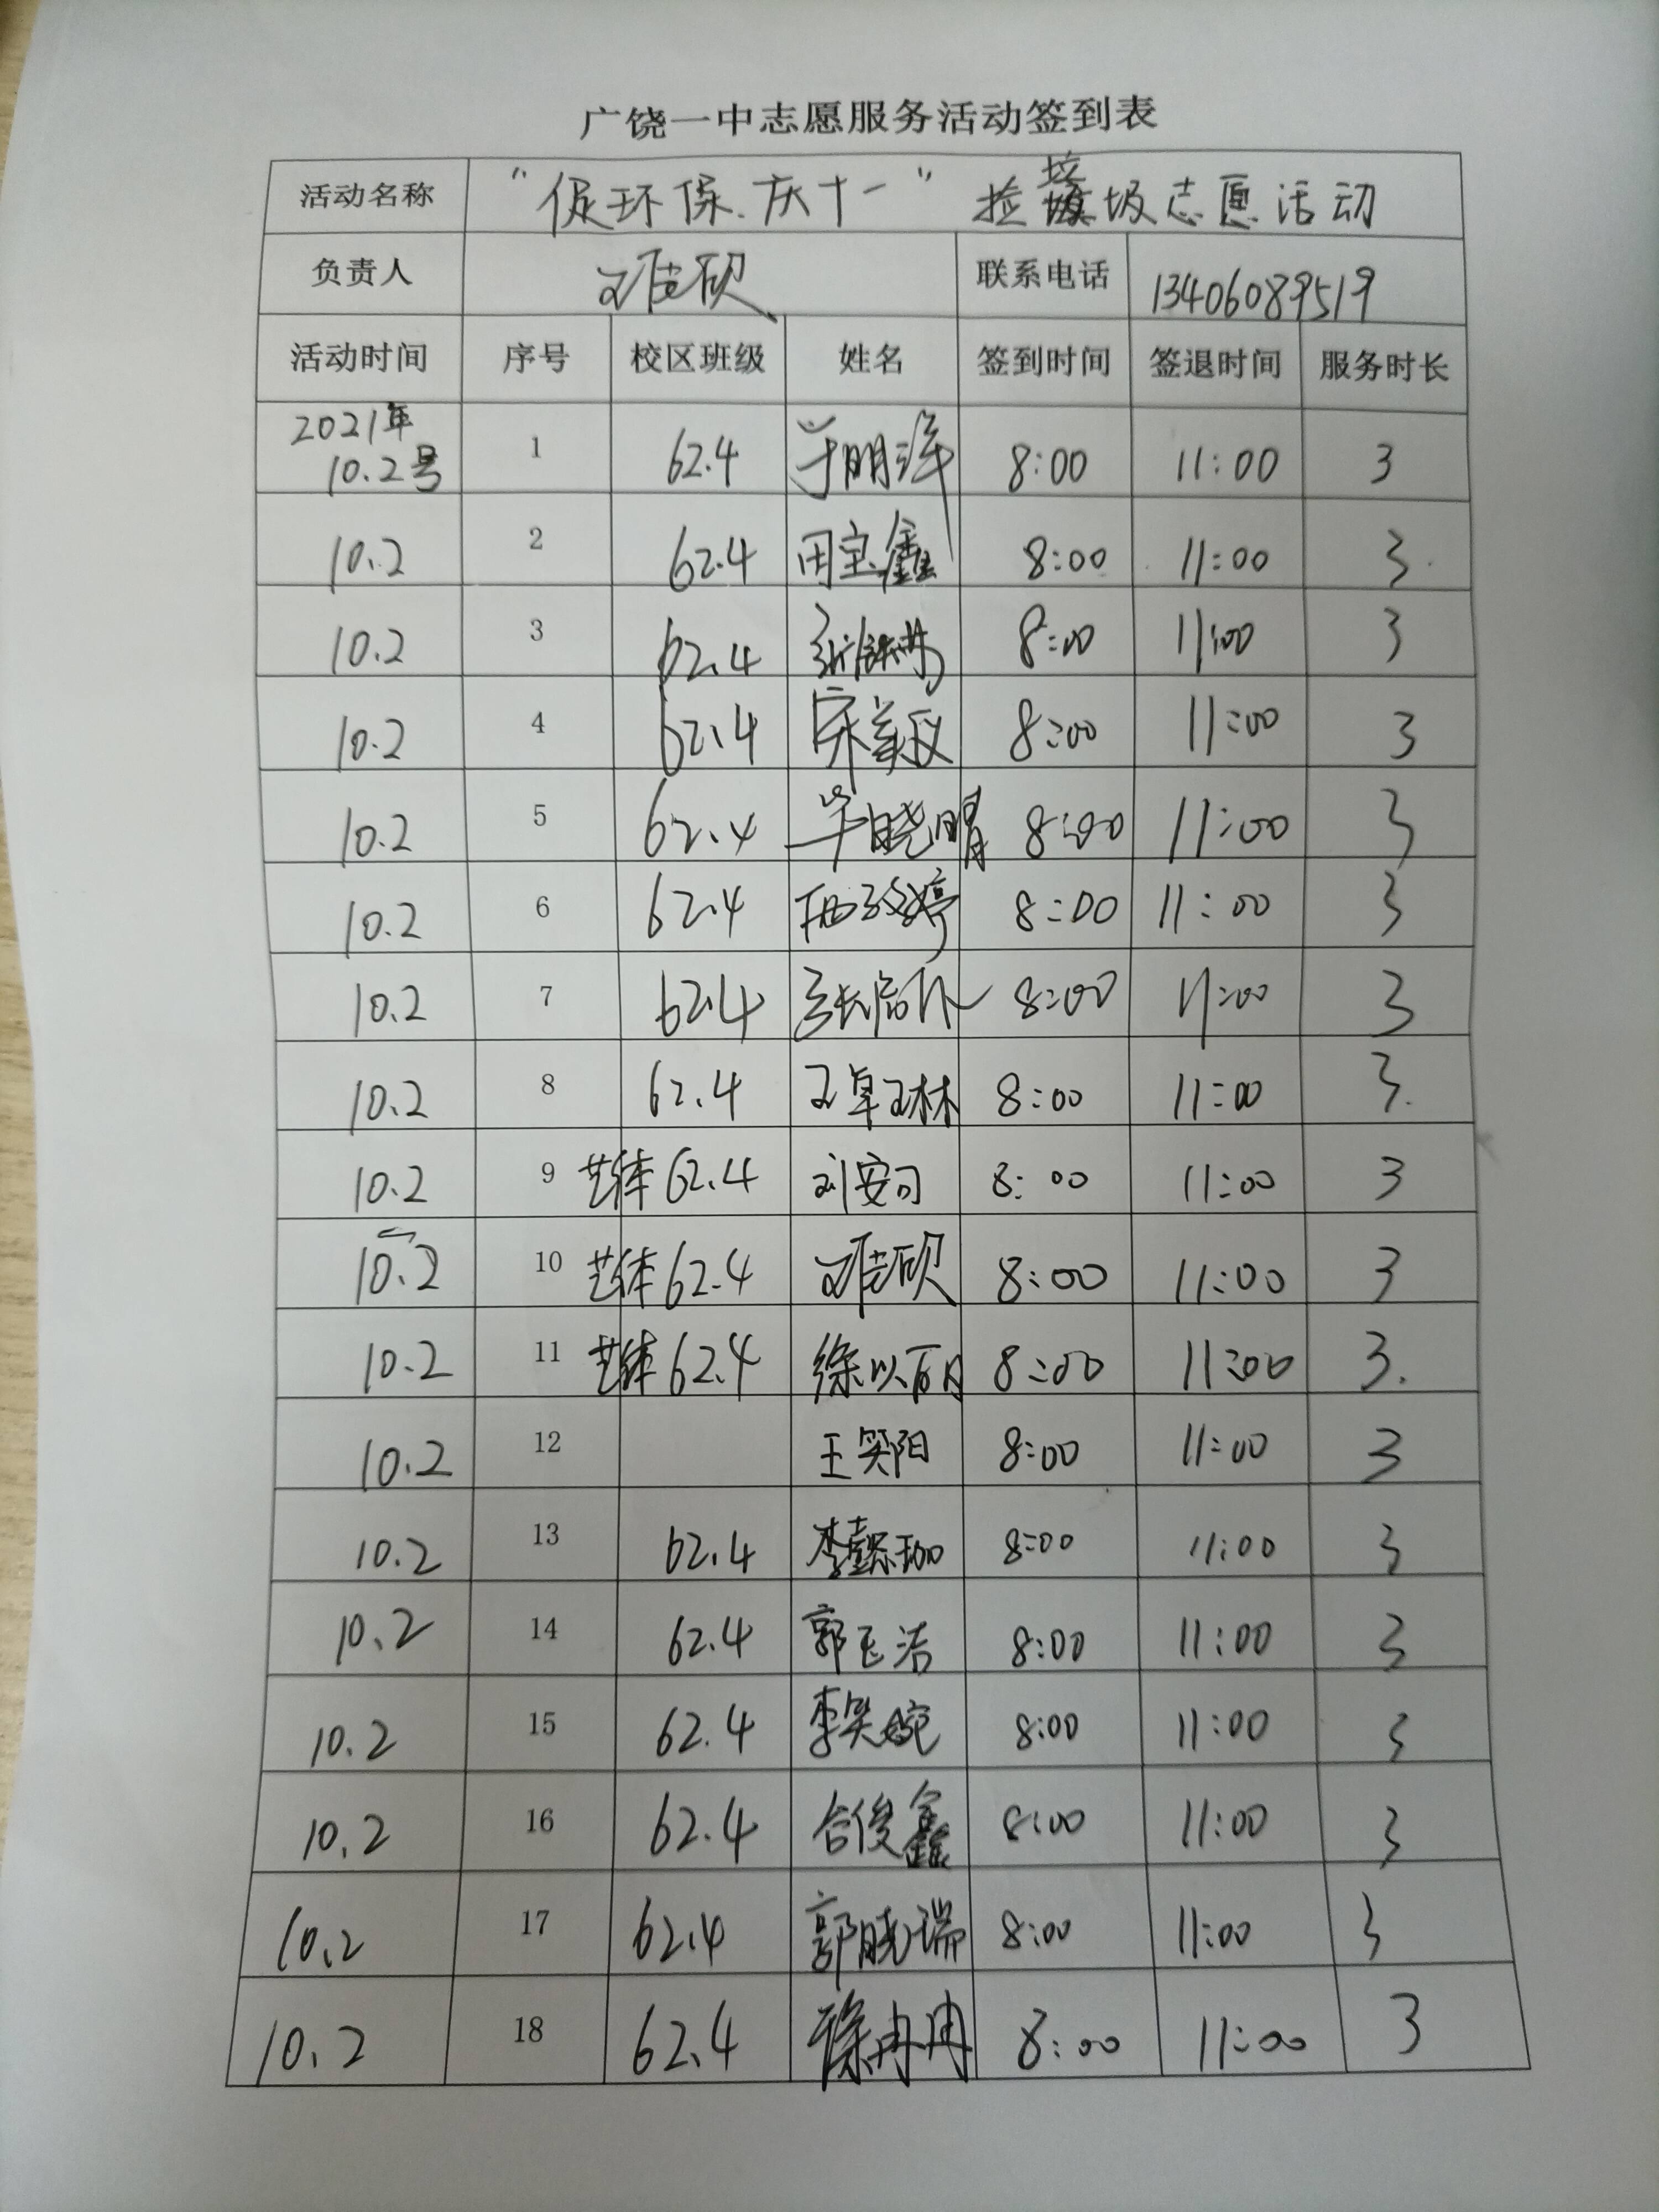 广饶一中志愿服务活动签到表
活动名称 “促环保.庆十一” 捡垃圾志愿活动
负责人 联系电话 13406089519
活动时间 序号 校区班级 姓名 签到时间 签退时间 服务时长
2021年
10.2号 1 62.4 8:00 11:00 3
10.2 2 62.4 周宝鑫 8:00 11:00 3
10.2 3 62.4 8:00 11:00 3
10.2 4 62.4 宋美仪 8:00 11:00 3
10.2 5 62.4 毕晓晴 8:00 11:00 3
10.2 6 62.4 8:00 11:00 3
10.2 7 62.4 8:00 11:00 3
10.2 8 62.4 王卓琳 8:00 11:00 3
10.2 9 艺体 62.4 刘安习 8:00 11:00 3
10.2 10 艺体 62.4 8:00 11:00 3
10.2 11 艺体 62.4 8:00 11:00 3
10.2 12 王笑阳 8:00 11:00 3
10.2 13 62.4 李懿珈 8:00 11:00 3
10.2 14 62.4 郭玉洁 8:00 11:00 3
10.2 15 62.4 李昊婉 8:00 11:00 3
10.2 16 62.4 合俊鑫 8:00 11:00 3
10.2 17 62.4 郭晓瑞 8:00 11:00 3
10.2 18 62.4 徐冉冉 8:00 11:00 3